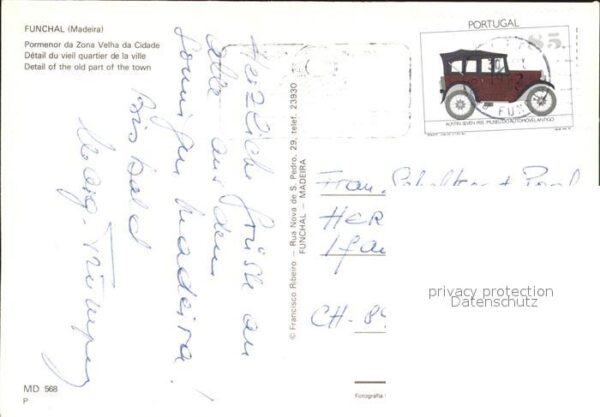 FUNCHAL (Madeira)
Pormenor da Zona Velha da Cidade
Détail du vieil quartier de la ville
Detail of the old part of the town
PORTUGAL
85.
AUSTIN SEVEN 1933. MUSEU DO AUTOMÓVEL ANTIGO
Herzliche Grüsse an
alle aus dem
sonnigen Madeira!
Bis bald
© Francisco Ribeiro — Rua Nova de S. Pedro, 29, telef. 23930
FUNCHAL — MADEIRA
HER
CH-
privacy protection
Datenschutz
MD 568
P
Fotografia